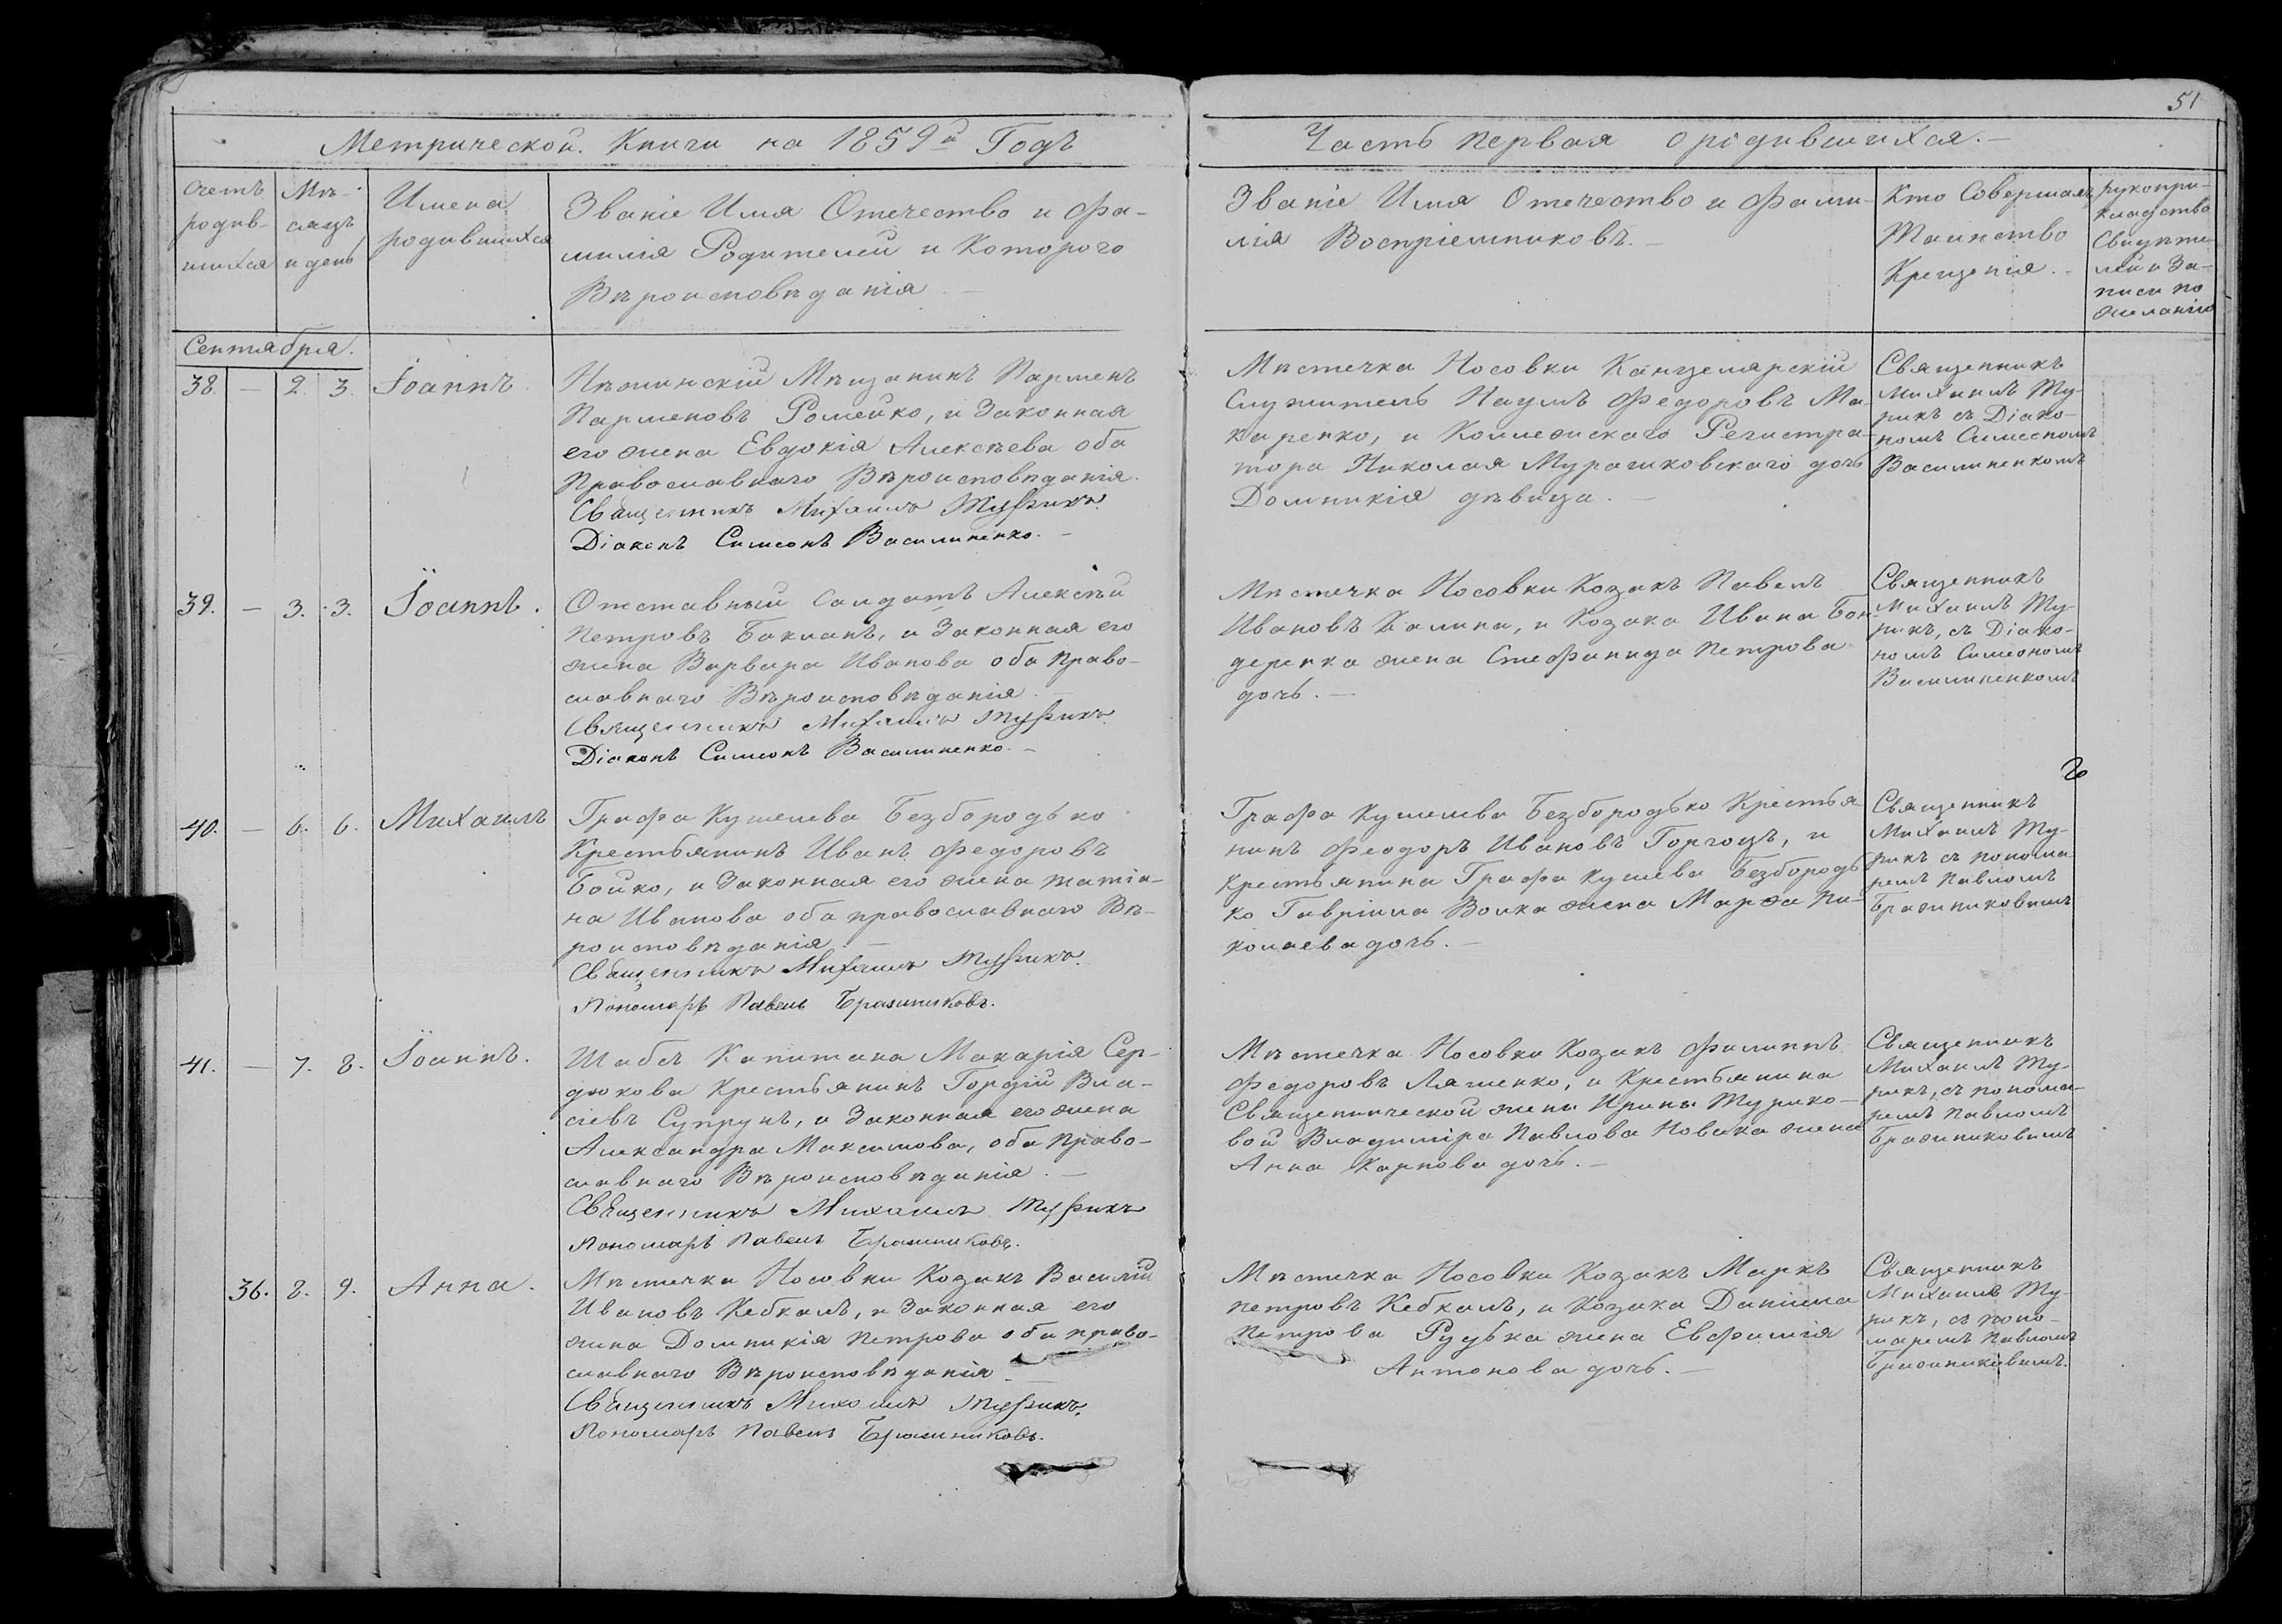 51
Метрической Книги на 1859й Годъ
Часть первая о родившихся.
Счетъ
родив-
шихся
Мѣ-
сяцъ
и день
Имена
родившихся
Званіе Имя Отечество и Фа-
милія Родителей и Которого
Вѣроисповѣданія
Званіе Имя Отечество и Фами-
лія Воспріемниковъ.
Кто Совершалъ
Таинство
Крещенія.
рукопри-
кладство
Свидѣте-
лей и За-
писи по
желанію
Сентября.
38. — 2. 3. Іоаннъ
Нѣжинскій Мѣщанинъ Парменъ
Парменовъ Ромейко, и Законная
его жена Евдокія Алексѣева оба
Православнаго Вѣроисповѣданія.
Священникъ Михаилъ Турикъ.
Діаконъ Симеонъ Василиненко.
Мѣстечка Носовки Канцелярскій
Служитель Наумъ Федоровъ Ма-
каренко, и Коллежскаго Регистра-
тора Николая Мурашковскаго дочь
Домникія дѣвица.
Священникъ
Михаилъ Ту-
рикъ съ Діако-
номъ Симеономъ
Василиненкомъ
39. — 3. 3. Іоаннъ.
Отставный Солдатъ Алексѣй
Петровъ Бакланъ, и Законная его
жена Варвара Иванова оба Право-
славнаго Вѣроисповѣданія.
Священникъ Михаилъ Турикъ.
Діаконъ Симеонъ Василиненко.
Мѣстечка Носовки Козакъ Павелъ
Ивановъ Калина, и Козака Ивана Бон-
деренка жена Стефанида Петрова
дочь.
Священникъ
Михаилъ Ту-
рикъ, съ Діако-
номъ Симеономъ
Василиненкомъ
40. — 6. 6. Михаилъ
Графа Кушелева Безбородько
Крестьянинъ Иванъ Федоровъ
Бойко, и Законная его жена Татіа-
на Иванова оба православнаго Вѣ-
роисповѣданія.
Священникъ Михаилъ Турикъ.
Пономарь Павелъ Бражниковъ.
Графа Кушелева Безбородько Крестья-
нинъ Феодоръ Ивановъ Горгоцъ, и
Крестьянина Графа Кушева Безбородь-
ко Гавріила Волка жена Марфа Ни-
колаева дочь.
Священникъ
Михаилъ Ту-
рикъ съ понома-
ремъ Павломъ
Бражниковымъ
41. — 7. 8. Іоаннъ.
Штабсъ Капитана Макарія Сер-
дюкова Крестьянинъ Гордій Вла-
сіевъ Супрунъ, и Законная его жена
Александра Максимова, оба Право-
славнаго Вѣроисповѣданія.
Священникъ Михаилъ Турикъ
Пономарь Павелъ Бражниковъ.
Мѣстечка Носовки Козакъ Филиппъ
Федоровъ Ляшенко, и Крестьянина
Священнической жены Ирины Турико-
вой Владиміра Павлова Новака жена
Анна Карпова дочь.
Священникъ
Михаилъ Ту-
рикъ, съ понома-
ремъ Павломъ
Бражниковымъ
36. 8. 9. Анна.
Мѣстечка Носовки Козакъ Василій
Ивановъ Кебкалъ, и Законная его
жена Домникія Петрова оба право-
славнаго Вѣроисповѣданія
Священникъ Михаилъ Турикъ,
Пономарь Павелъ Бражниковъ.
Мѣстечка Носовки Козакъ Маркъ
Петровъ Кебкалъ, и Козака Даніила
Петрова Рудька жена Евфимія
Антонова дочь.
Священникъ
Михаилъ Ту-
рикъ, съ поно-
маремъ Павломъ
Бражниковымъ.